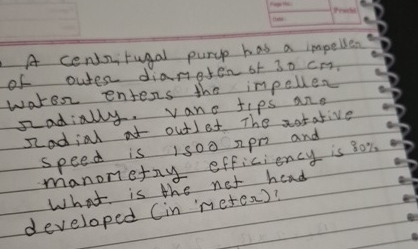 A centrifugal pump has a impeller
of outer diameter of 30 cm.
water enters the impeller
radially. Vane tips are
radial at outlet The rotative
speed is 1500 rpm and
manometry efficiency is 80%
what is the net head
developed (in meter)?